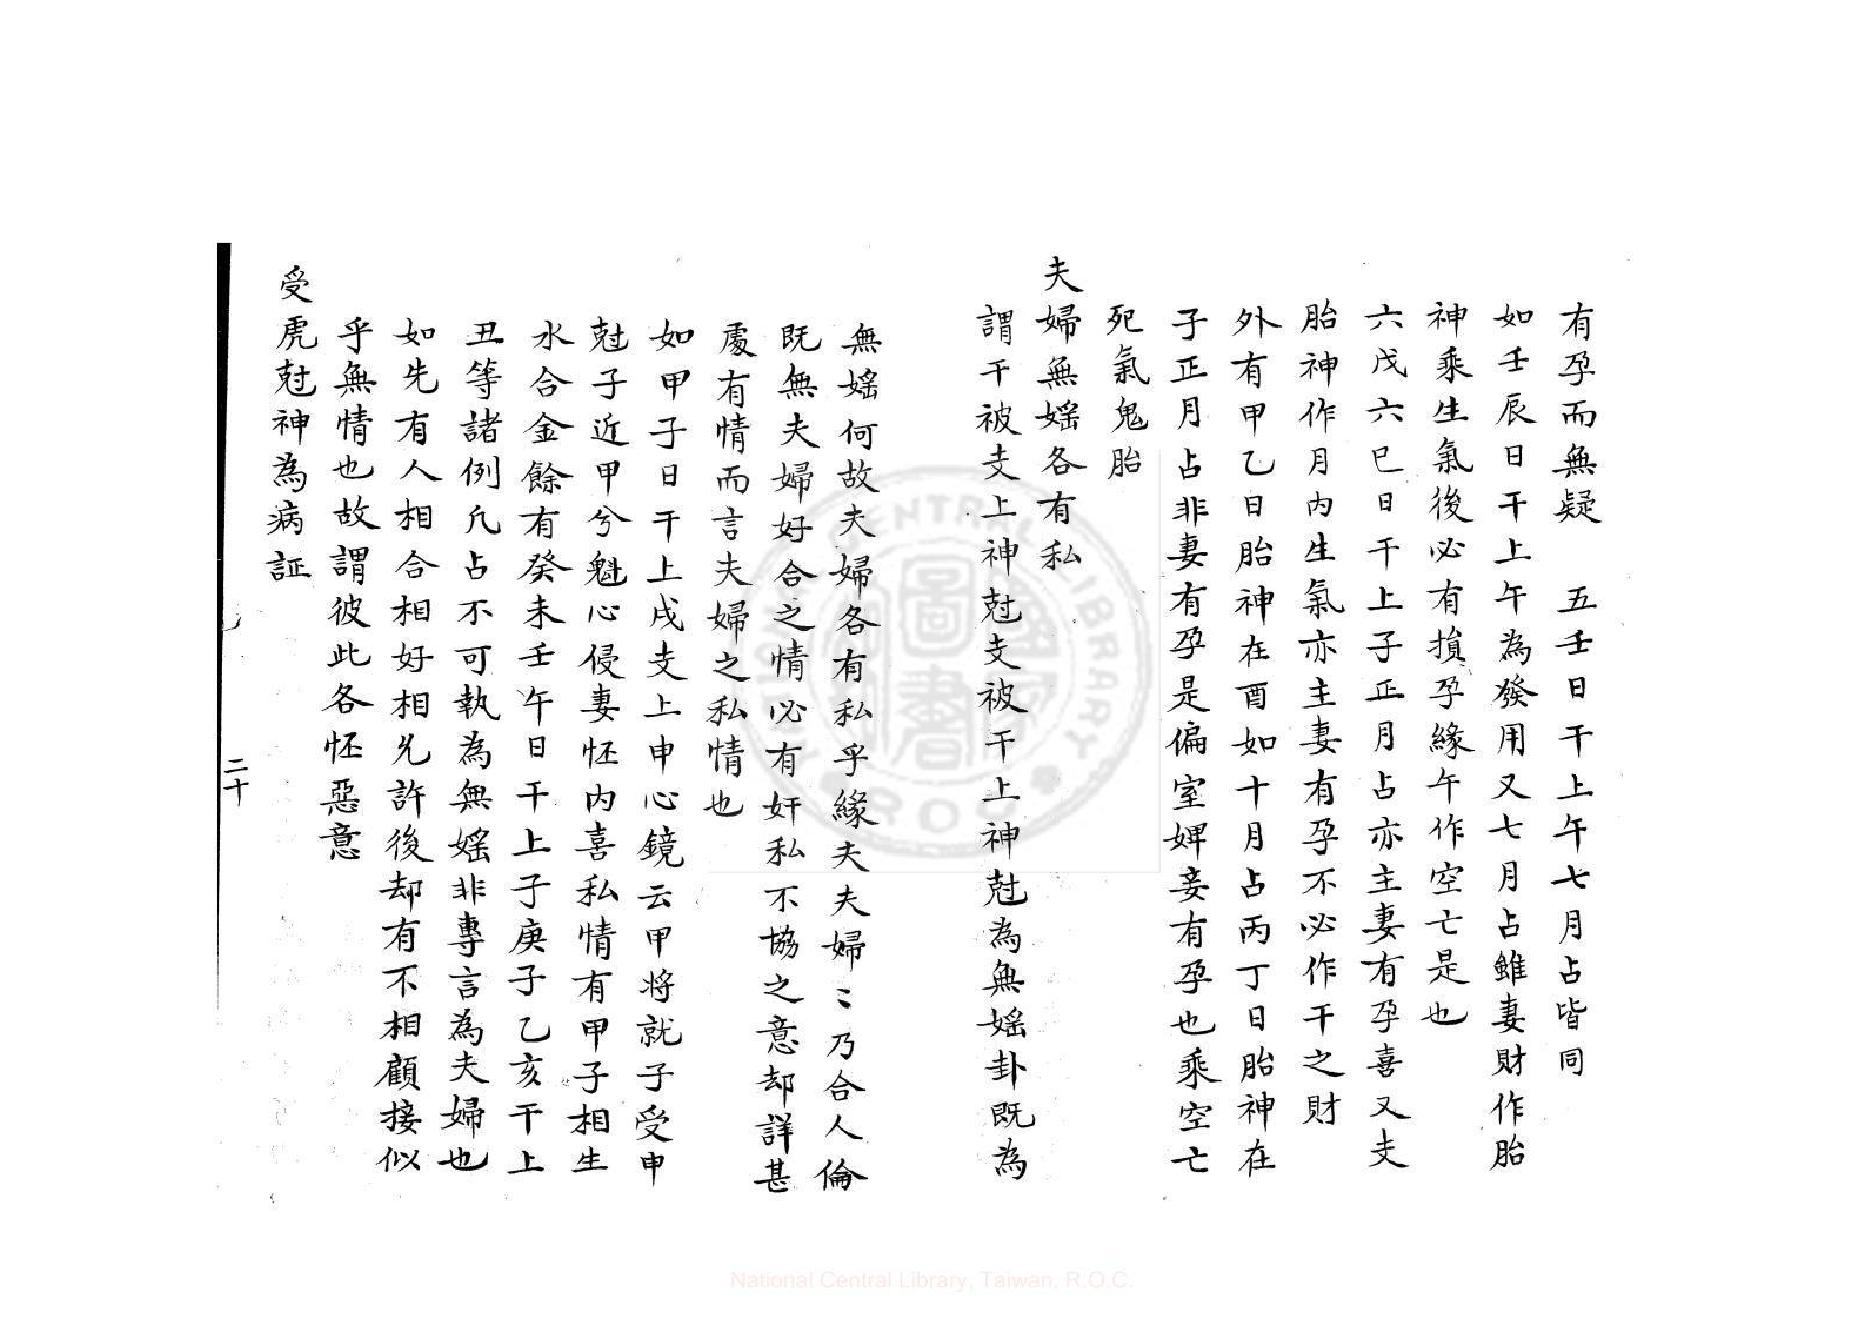 有孕而無疑　五壬日干上午七月占皆同
如壬辰日干上午為發用又七月占雖妻財作胎
神乘生氣後必有損孕緣午作空亡是也
六戊六巳日干上子正月占亦主妻有孕喜又支
胎神作月內生氣亦主妻有孕不必作干之財
外有甲乙日胎神在酉如十月占丙丁日胎神在
子正月占非妻有孕是偏室婢妾有孕也乘空亡
死氣鬼胎
夫婦無婬各有私
謂干被支上神尅支被干上神尅為無婬卦既為
無婬何故夫婦各有私乎緣夫夫婦〻乃合人倫
既無夫婦好合之情必有奸私不協之意却詳甚
處有情而言夫婦之私情也
如甲子日干上戌支上申心鏡云甲將就子受申
尅子近甲兮魁心侵妻怪內喜私情有甲子相生
水合金餘有癸未壬午日干上子庚子乙亥干上
丑等諸例凡占不可執為無婬非專言為夫婦也
如先有人相合相好相允許後却有不相顧接似
乎無情也故謂彼此各怪惡意
受虎尅神為病証
二十
National Central Library, Taiwan, R.O.C.